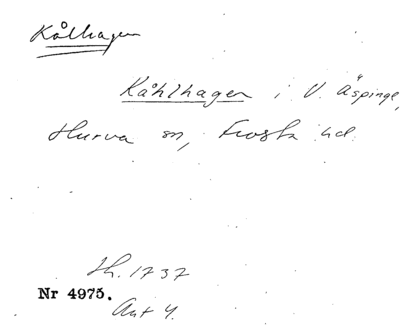 Kålhagen
Kåhlhagen i V. Äspinge,
Hurva sn, Frosta hd.
Lh. 1737
Nr 4975.
Ant 4.